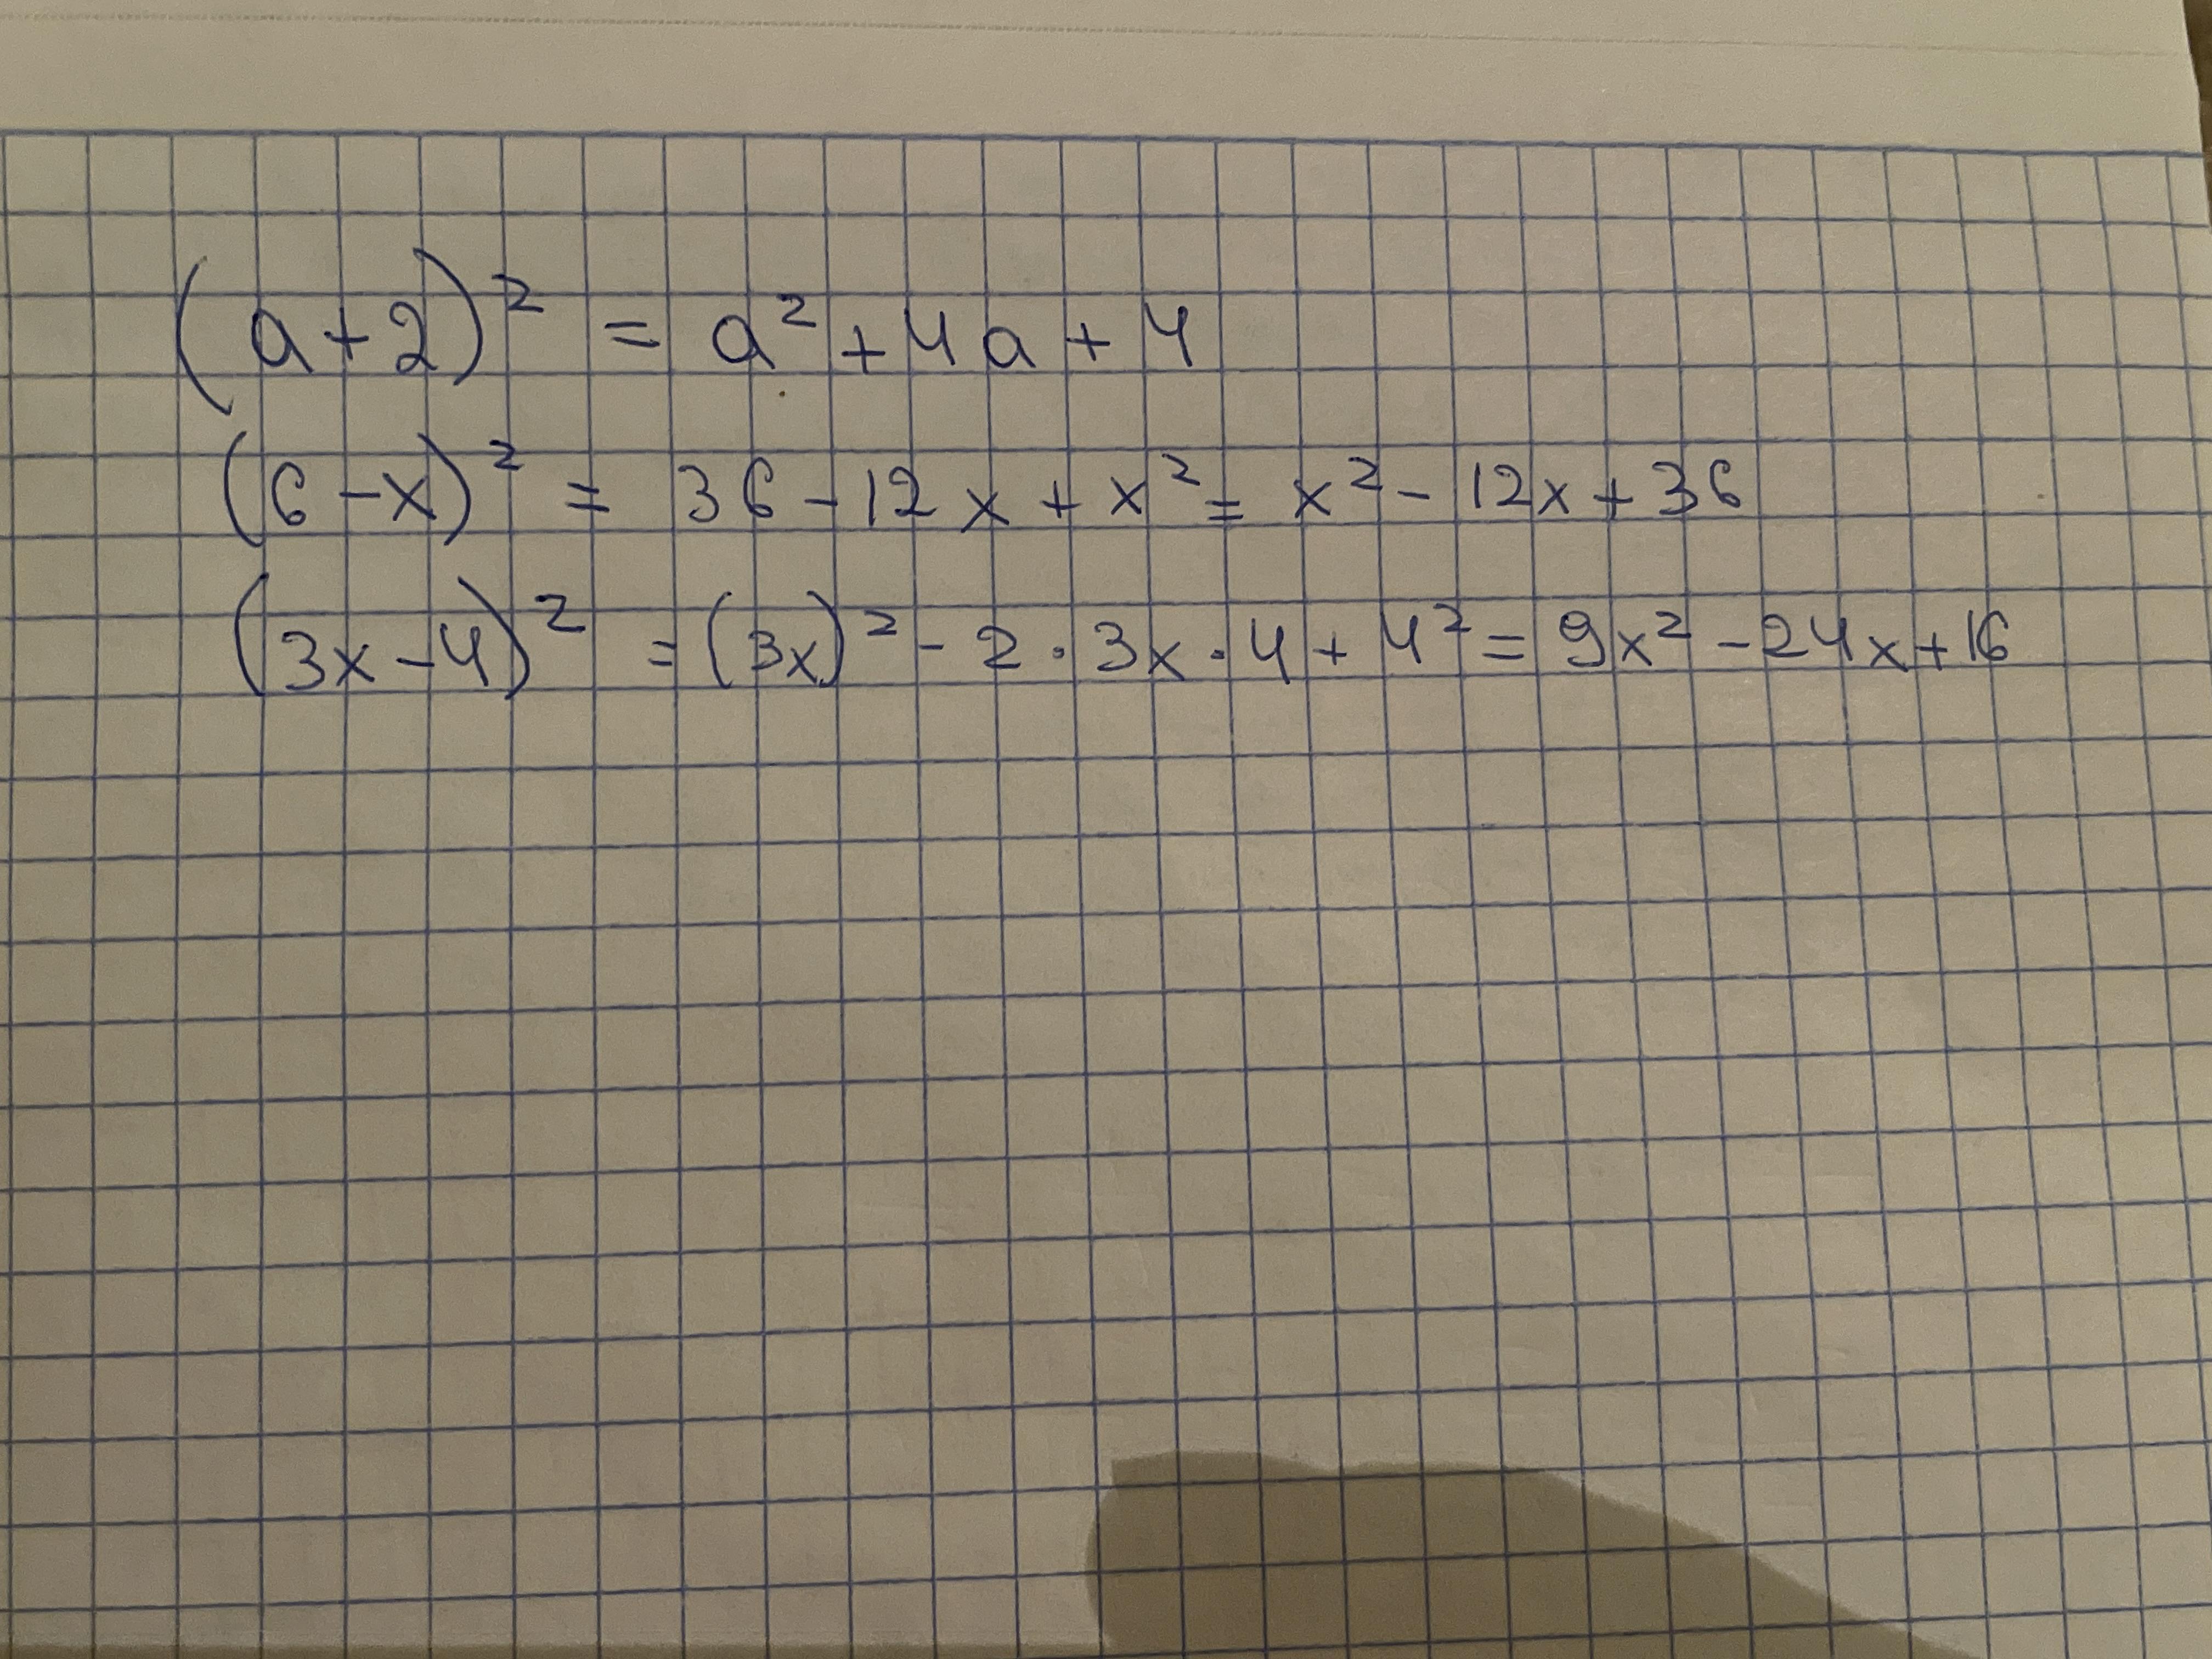 (a+2)² = a² + 4a + 4
(6-x)² = 36 - 12x + x² = x² - 12x + 36
(3x-4)² = (3x)² - 2 · 3x · 4 + 4² = 9x² - 24x + 16